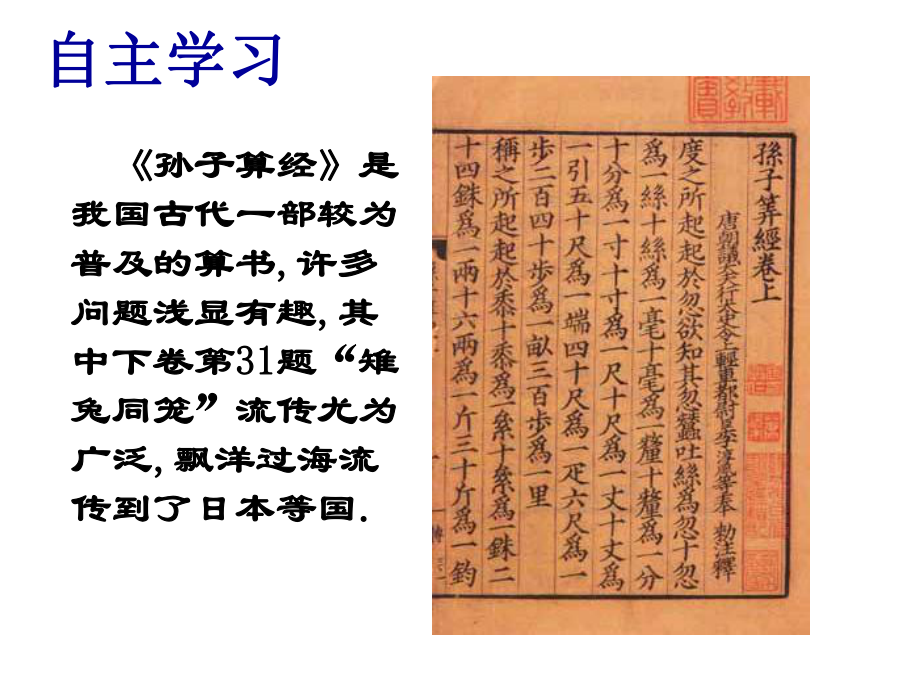 自主学习
《孙子算经》是
我国古代一部较为
普及的算书,许多
问题浅显有趣,其
中下卷第31题“雉
兔同笼”流传尤为
广泛,飘洋过海流
传到了日本等国.
孫子筭經卷上
唐朝議大夫行太史令上輕車都尉臣李淳風等奉 勅注釋
度之所起起於忽欲知其忽蠶吐絲爲忽十忽
爲一絲十絲爲一毫十毫爲一釐十釐爲一分
十分爲一寸十寸爲一尺十尺爲一丈十丈爲
一引五十尺爲一端四十尺爲一疋六尺爲一
步二百四十步爲一畝三百步爲一里
稱之所起起於黍十黍爲一絫十絫爲一銖二
十四銖爲一兩十六兩爲一斤三十斤爲一鈞